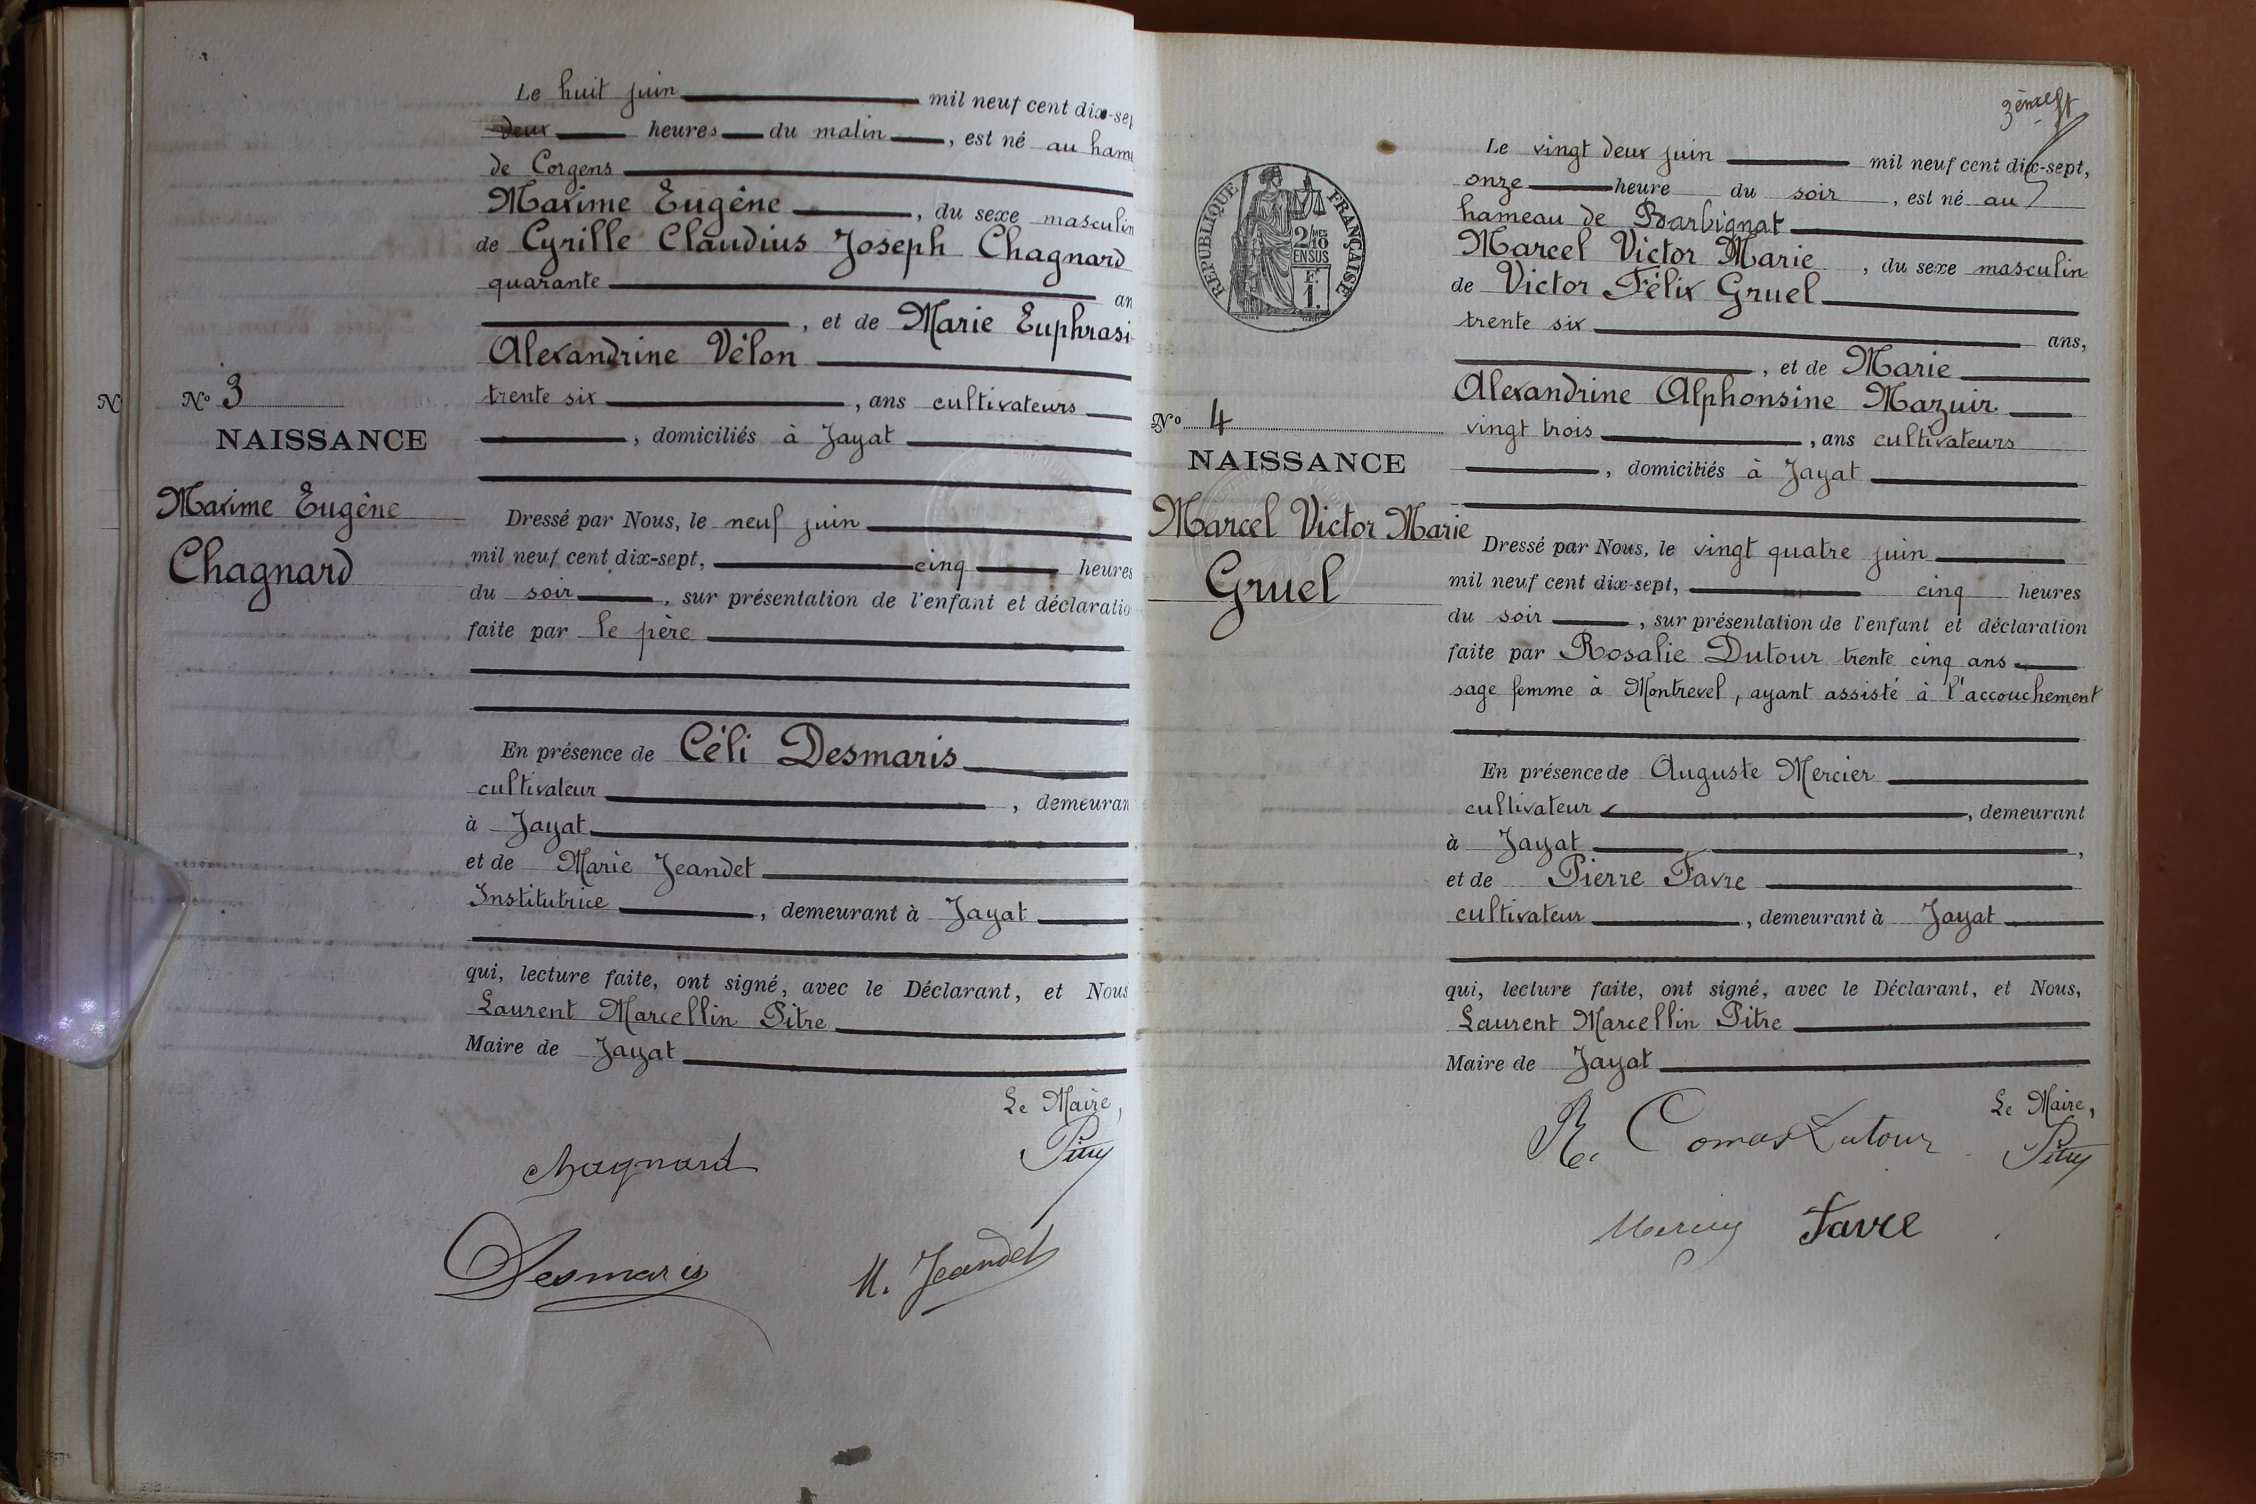 Le huit juin mil neuf cent dix-sep
deux heures du matin, est né au ham
de Corgens
Maxime Eugène, du sexe masculin
de Cyrille Claudius Joseph Chagnard
quarante an
, et de Marie Euphrasi
Alexandrine Vélon
trente six, ans cultivateurs
, domiciliés à Jayat
N
N° 3
NAISSANCE
Maxime Eugène
Chagnard
Dressé par Nous, le neuf juin
mil neuf cent dix-sept, cinq heures
du soir, sur présentation de l'enfant et déclaratio
faite par le père
En présence de Céli Desmaris
cultivateur, demeuran
à Jayat
et de Marie Jeandet
Institutrice, demeurant à Jayat
qui, lecture faite, ont signé, avec le Déclarant, et Nous
Laurent Marcellin Pitre
Maire de Jayat
Le Maire,
Chagnard
Desmaris
M. Jeandet
RÉPUBLIQUE FRANÇAISE
2/10
MES
EN SUS
F.
1.
Le vingt deux juin mil neuf cent dix-sept,
onze heure du soir, est né au
hameau de Barbignat
Marcel Victor Marie, du sexe masculin
de Victor Félix Gruel
trente six ans,
, et de Marie
Alexandrine Alphonsine Mazuir
vingt trois, ans cultivateurs
, domiciliés à Jayat
N° 4
NAISSANCE
Marcel Victor Marie
Gruel
Dressé par Nous, le vingt quatre juin
mil neuf cent dix-sept, cinq heures
du soir, sur présentation de l'enfant et déclaration
faite par Rosalie Dutour trente cinq ans
sage femme à Montrevel, ayant assisté à l'accouchement
En présence de Auguste Mercier
cultivateur, demeurant
à Jayat,
et de Pierre Favre
cultivateur, demeurant à Jayat
qui, lecture faite, ont signé, avec le Déclarant, et Nous,
Laurent Marcellin Pitre
Maire de Jayat
Le Maire,
R. Comas Dutour
Favre